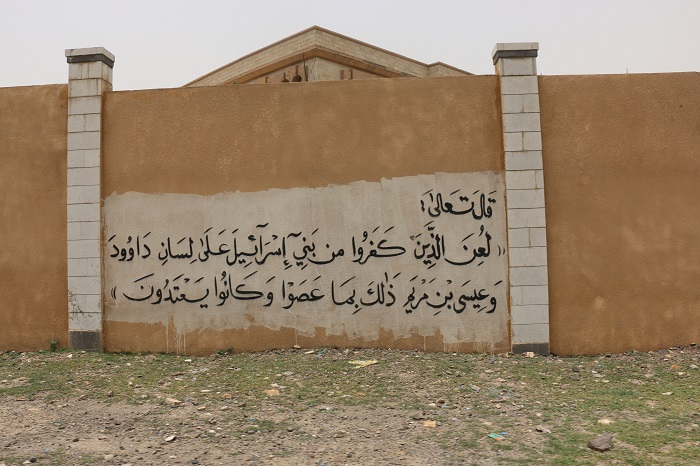 قَالَ تَعَالَىٰ:
(( لُعِنَ الَّذِينَ كَفَرُوا مِن بَنِي إِسْرَآئِيلَ عَلَىٰ لِسَانِ دَاوُودَ
وَعِيسَى بْنِ مَرْيَمَ ذَٰلِكَ بِمَا عَصَوْا وَكَانُوا يَعْتَدُونَ ))